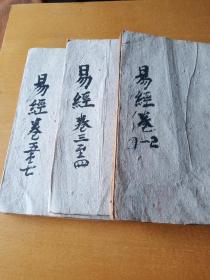 易經卷1-2
易經卷三至四
易經卷五至七